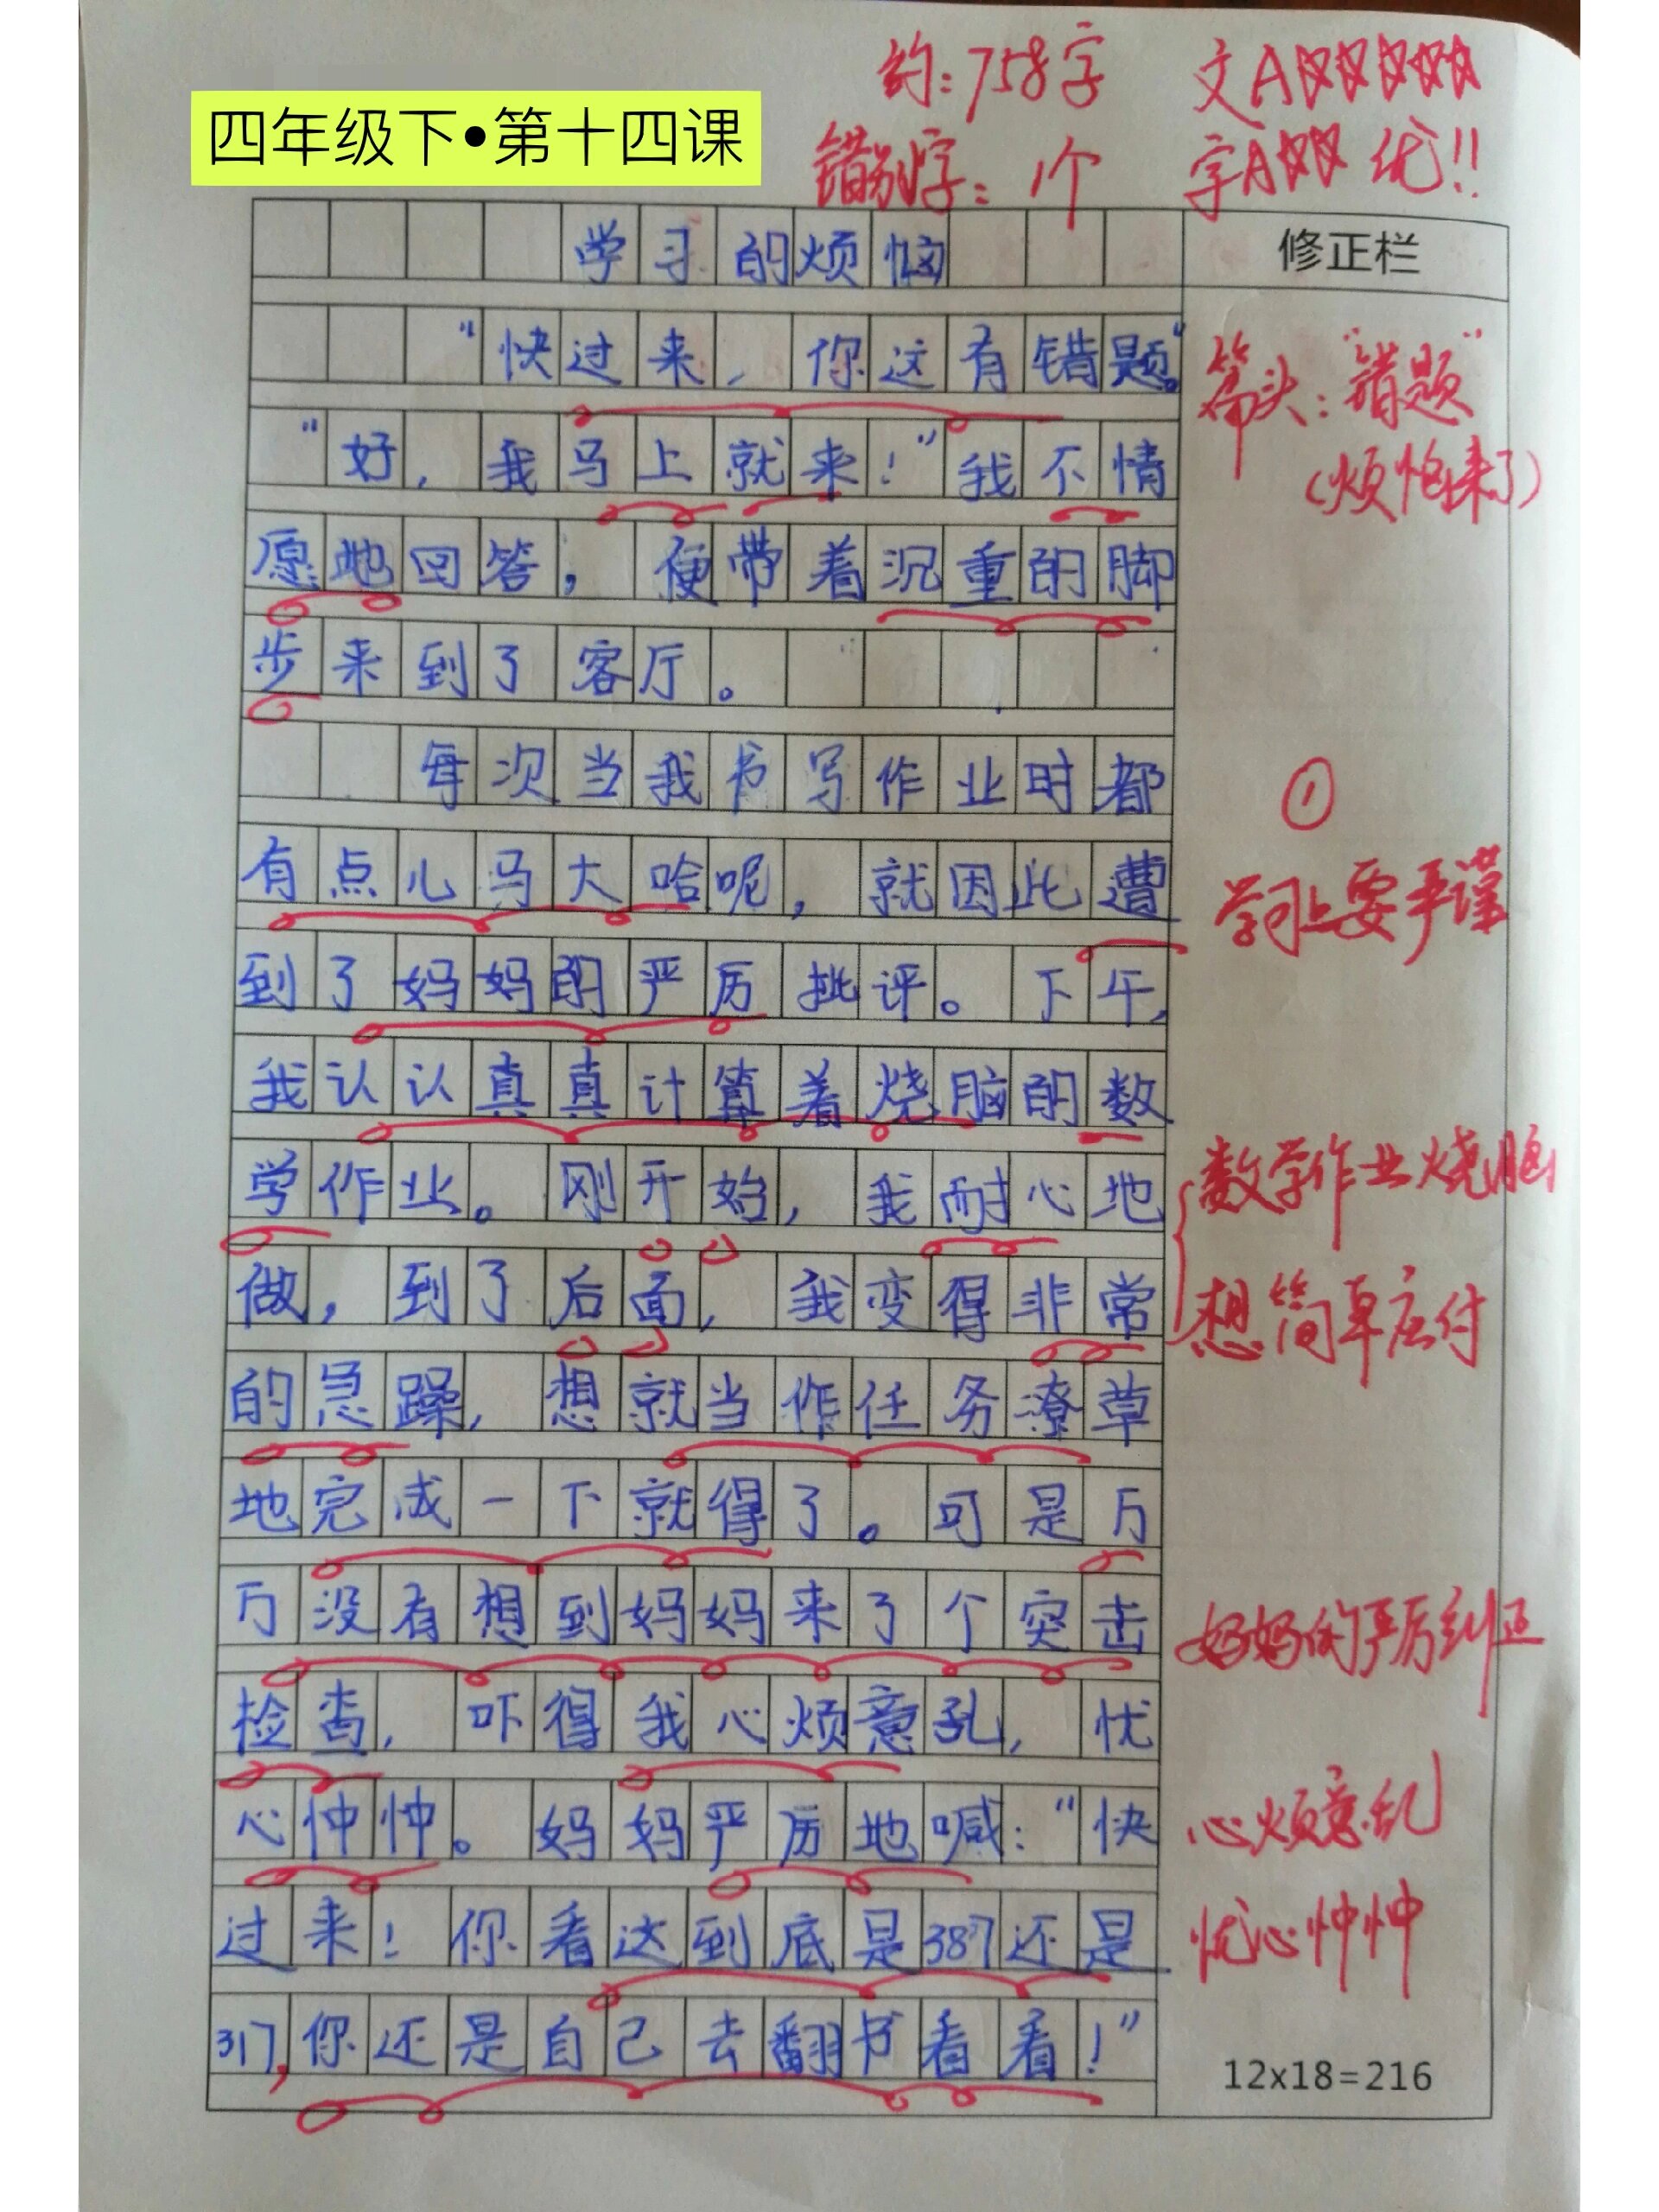 约：758字 文A☆☆☆☆☆
四年级下•第十四课
错别字：1个 字A☆☆ 优!!
学习的烦恼
修正栏
“快过来，你这有错题。”
篇头：“错题”
“好，我马上就来！”我不情
（烦恼来了）
愿地回答，便带着沉重的脚
步来到了客厅。
每次当我书写作业时都
①
有点儿马大哈呢，就因此遭
学习上要严谨
到了妈妈的严厉批评。下午，
我认认真真计算着烧脑的数
数学作业烧脑
学作业。刚开始，我耐心地
做，到了后面，我变得非常
想简单应付
的急躁，想就当作任务潦草
地完成一下就得了。可是万
万没有想到妈妈来了个突击
妈妈的严厉纠正
检查，吓得我心烦意乱，忧
心忡忡。妈妈严厉地喊：“快
心烦意乱
过来！你看这到底是387还是
忧心忡忡
317，你还是自己去翻书看看！”
12x18=216